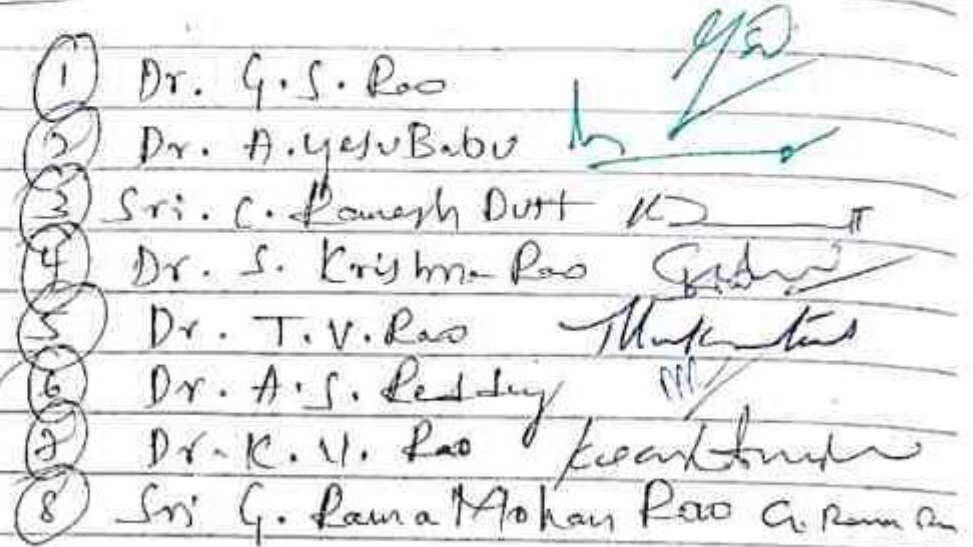 1 Dr. G.S. Rao
2 Dr. A. YesuBabu
3 Sri. C. Ramesh Dutt
4 Dr. S. Krishna Rao
5 Dr. T.V. Rao
6 Dr. A.S. Reddy
7 Dr. K.V. Rao
8 Sri G. Rama Mohan Rao G. Rama